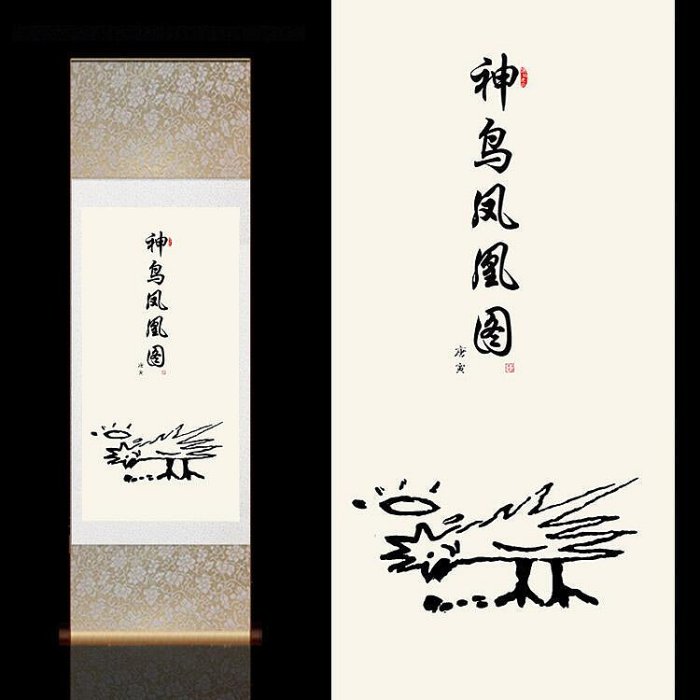 神鸟凤凰图
唐寅
神鸟凤凰图
唐寅